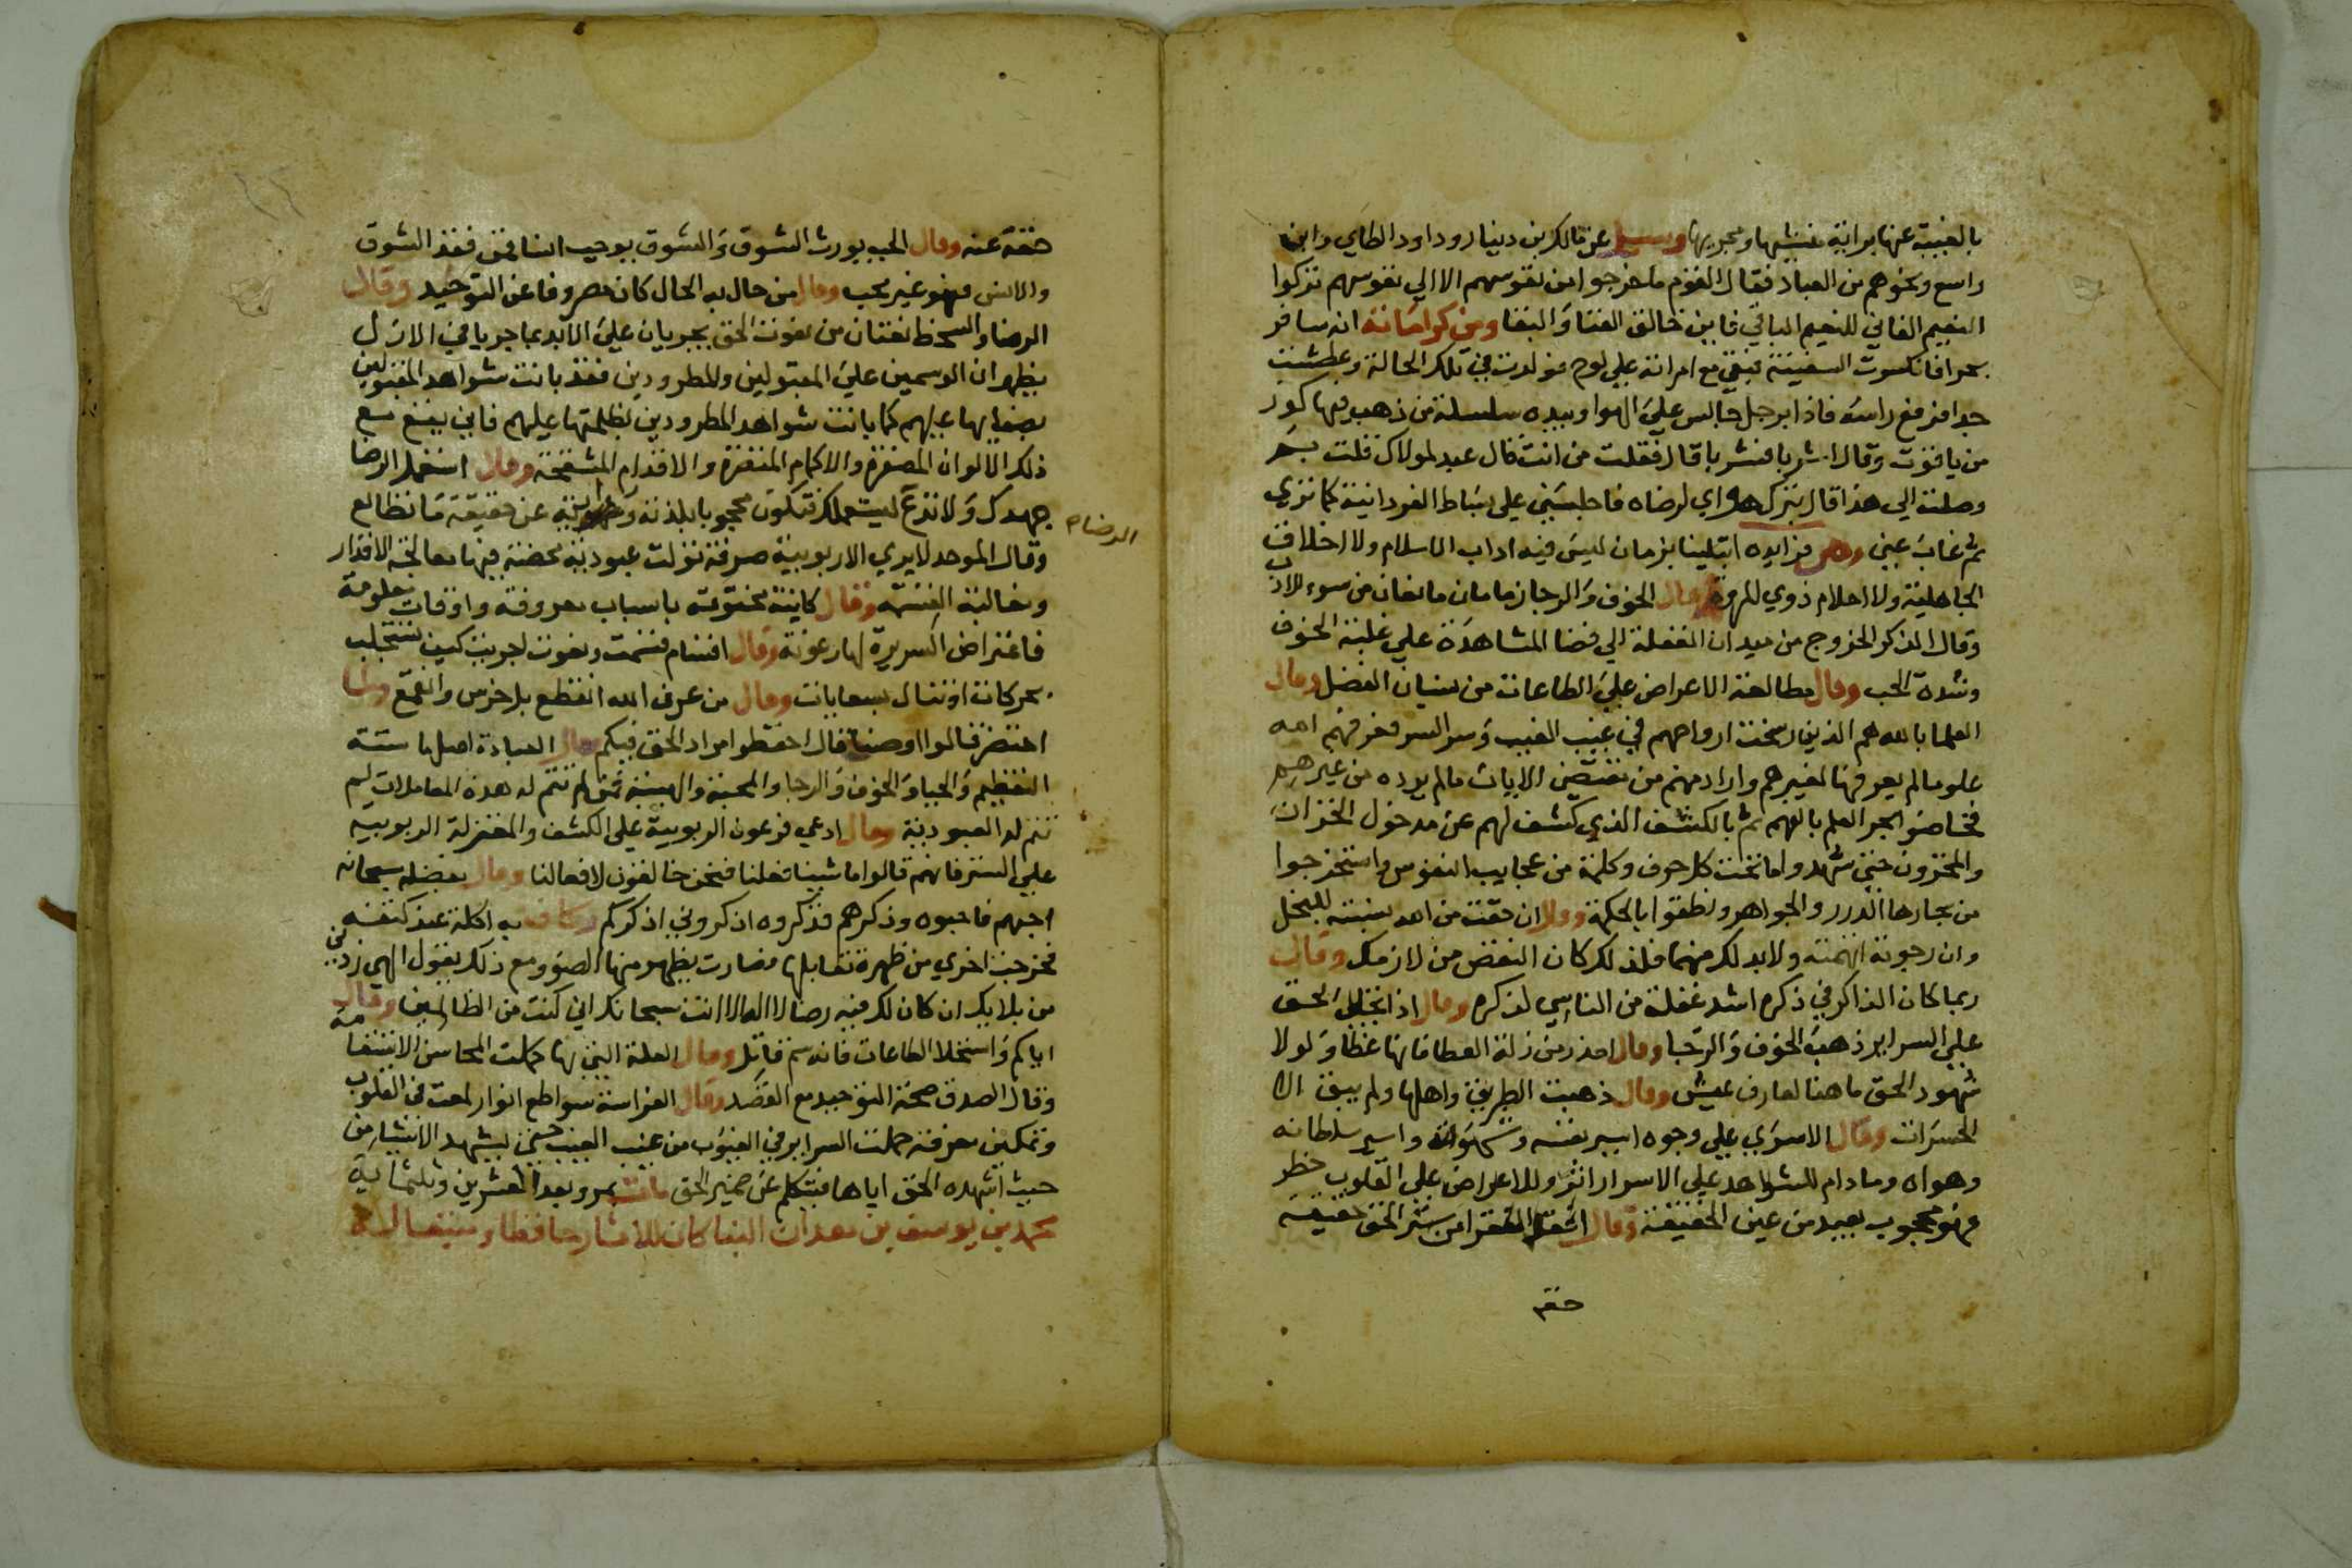 بالغيبة عنها برانية منشيها ومجريها وسيل عن مالك بن دينار وداود الطاي وابن
واسع ونحوهم من العباد فقال القوم ما خرجوا من نفوسهم الا الي نفوسهم تركوا
النعيم الفاني للنعيم الباقي فاين خالق الفنا والبقا ومن كراماته انه سافر
بحرا فانكسرت السفينة فبقي مع امراته علي لوح فولدت في تلك الحالة وعطشت
جدا فرفع راسه فاذا برجل جالس علي الهوا وبيده سلسلة من ذهب فيها كوز
من ياقوت وقال اشربا فشربا قال فقلت من انت قال عبد لمولاك قلت بم
وصلت الي هذا قال بترك هواي لرضاه فاجلسني علي بساط الفردانية كما تري
ثم غاب عني ومن فوايده ابتلينا بزمان ليس فيه اداب الاسلام ولا اخلاق
الجاهلية ولا احلام ذوي المروة وقال الخوف والرجا زمامان مانعان من سوء الادب
وقال الذكر الخروج من ميدان الغفلة الي فضا المشاهدة علي غلبة الخوف
وشدة الحب وقال مطالعة الاعواض علي الطاعات من نسيان الفضل وقال
العلما بالله هم الذين رسخت ارواحهم في غيب الغيب وسر السر فعرفهم الله
علوما لم يعرفها لغيرهم واراد منهم من مقتضى الايات ما لم يرده من غيرهم
فخاضوا بحر العلم بالفهم ثم بالكشف الذي كشف لهم عن مدخول الخزاين
والمخزون حتي شهدوا ما تحت كل حرف وكلمة من عجايب النفوس واستخرجوا
من بحارها الدرر والجواهر ونطقوا بالحكمة وقال ان خفت من الله نسبته للبخل
وان رجوته اتهمته ولا بد لك منهما فلذلك كان النقص من لازمك وقال
ربما كان الذاكر في ذكره اشد غفلة من الناسي لذكره وقال اذا تجلي الحق
علي السراير ذهب الخوف والرجا وقال احذر من زلة العطا فانها غطا ولولا
شهود الحق ما هنا لعارف عيش وقال ذهبت الطريق واهلها ولم يبق الا
الحسرات وقال الاسري علي وجوه اسير نفسه وشهواته واسير سلطانه
وهواه وما دام للشواهد علي الاسرار اثر وللاعراض علي القلوب خطر
فهو محجوب بعيد من عين الحقيقة وقال افقر الفقرا من ستر الحق حقيقة
حقه
حقه عنه وقال الحب يورث الشوق والشوق يوجب الانس فمن فقد الشوق
والانس فهو غير محب وقال من حال به الحال كان مصروفا عن التوحيد وقال
الرضا والسخط نعتان من نعوت الحق يجريان علي الابد بما جريا في الازل
يظهران الوسمين علي المقبولين والمطرودين فقد بانت شواهد المقبولين
بضيايها عليهم كما بانت شواهد المطرودين بظلمتها عليهم فاني ينفع مع
ذلك الالوان المصفرة والاكمام المقصرة والاقدام المنتفخة وقال استعمل الرضا
جهدك ولا تدع يستعملك فتكون محجوبا بلذته ورؤيته عن حقيقة ما تطالع
الرضاء
وقال الموحد لا يري الا ربوبية صرفة تولت عبودية محضة فيها معالجة الاقدار
ومغالبة القسمة وقال كاينة محتومة باسباب معروفة واوقات معلومة
فاعتراض السريرة لها رعونة وقال اقسام قسمت ونعوت اجريت كيف تستجلب
بحركات او تنال بسعايات وقال من عرف الله انقطع بل خرس وانقمع ولما
احتضر قالوا اوصنا قال احفظوا مراد الحق فيكم وقال العبادة اصلها ستة
التعظيم والحيا والخوف والرجا والمحبة والهيبة فمن لم تتم له هذه المعاملات لم
تتم له العبودية وقال ادعي فرعون الربوبية علي الكشف والمعتزلة الربوبية
علي الستر فانهم قالوا ما شينا فعلنا فنحن خالقون لافعالنا وقال بفضله سبحانه
احبهم فاحبوه وذكرهم فذكروه اذكروني اذكركم وكان به اكلة عند كتفه
فخرجت اخري من ظهره تقابلها فصارت يظهر منها الضوء ومع ذلك يقول الهي زدني
من بلايك ان كان لك فيه رضا لا اله الا انت سبحانك اني كنت من الظالمين وقال
اياكم واستحلا الطاعات فانه سم قاتل وقال العلة التي بها كملت المحاسن الاستقامة
وقال الصدق صحة التوحيد مع القصد وقال الفراسة سواطع انوار لمعت في القلوب
وتمكين معرفة حملت السراير في الغيوب من غيب الغيب حتي يشهد الاشيا من
حيث اشهده الحق اياها فيتكلم عن ضمير الحق مات بمرو بعد العشرين وثلثماية
محمد بن يوسف بن معدان البنا كان للاثار حافظا ومتبعا له